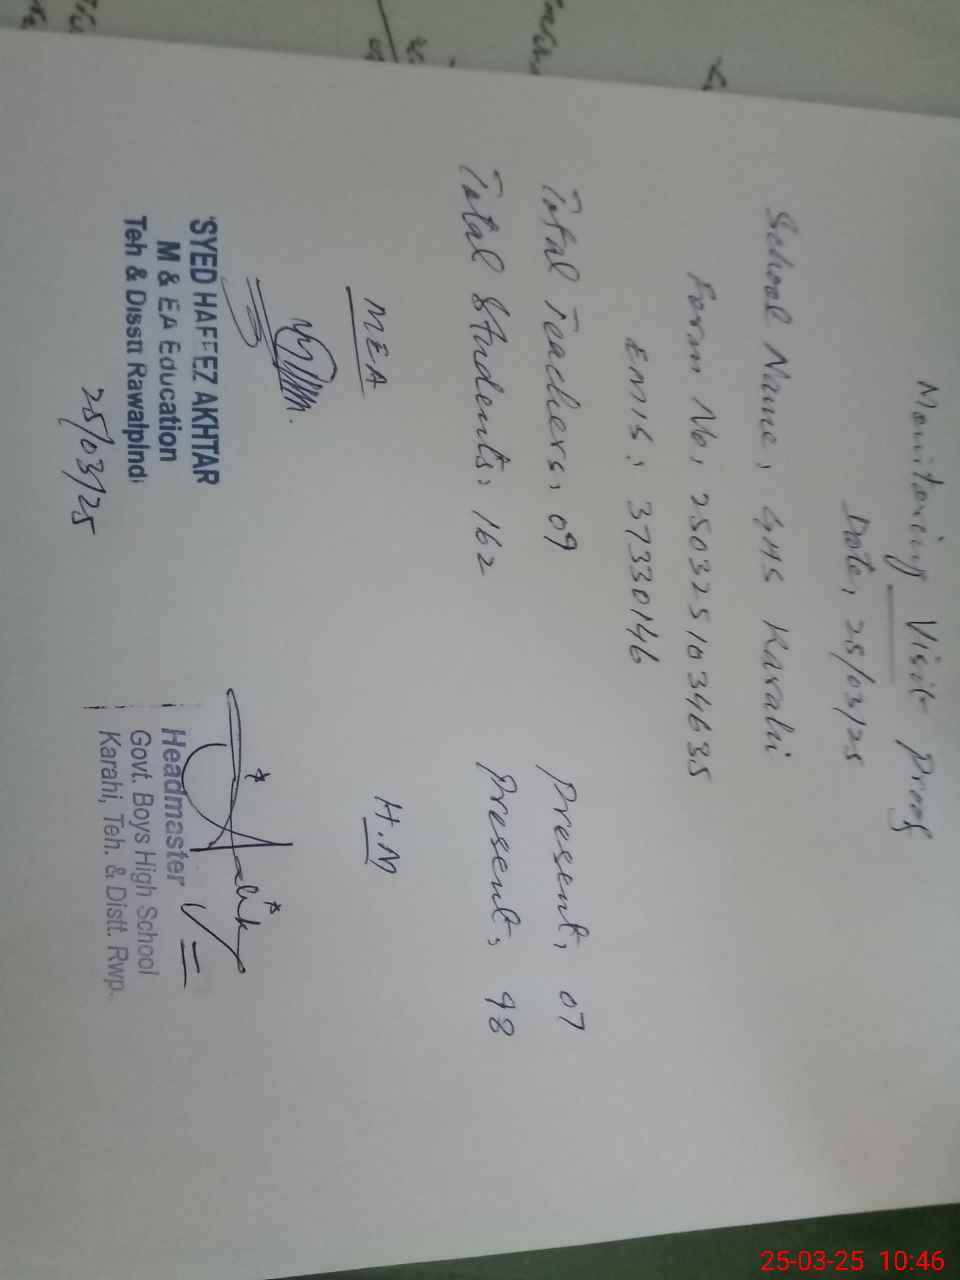 Monitoring Visit Proof
Date, 25/03/25
School Name, GHS Karahi
Form No, 2503251034635
EMIS: 37330146
Total Teachers, 09 Present, 07
Total Students: 162 Present, 98
MEA H.M
SYED HAFEEZ AKHTAR
M & EA Education
Teh & Disstt Rawalpindi
25/03/25
Headmaster
Govt. Boys High School
Karahi, Teh. & Distt. Rwp.
25-03-25 10:46